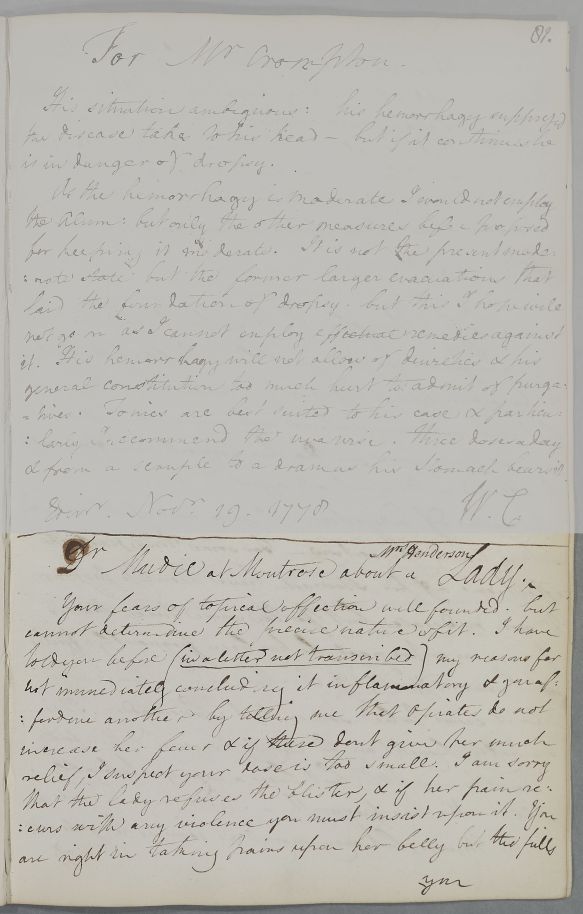 81.
For Mr Crompton.
His situation ambiguous: his hemorrhagy supposed
the disease take to his head - but if it continues he
is in danger of dropsy.
As the hemorrhagy is moderate I would not employ
the Alum: but only the other measures before proposed
for keeping it moderate. It is not the present mode-
:rate state but the former larger evacuations that
laid the foundation of dropsy. but this I hope will
not go on as I cannot employ effectual remedies against
it. His hemorrhagy will not allow of diuretics & his
general constitution too much hurt to admit of purga-
-tives. Tonics are best suited to his case & particu-
:larly I recommend the uva ursi. three doses a day
& from a scruple to a dram as his stomach bears it
Edinr. Novr. 19. 1778 W. C.
Dr Mudie at Montrose about a Mrs Henderson Lady.
Your fears of topical affection well founded. but
cannot determine the precise nature of it. I have
told you before (in a letter not transcribed) my reasons for
not immediately concluding it inflammatory & you af-
:ford me another by telling me that opiates do not
increase her fever & if these dont give her much
relief, I suspect your dose is too small. I am sorry
that the lady refuses the blister, & if her pain re-
:curs with any violence you must insist upon it. You
are right in taking pains upon her belly but the pills
you